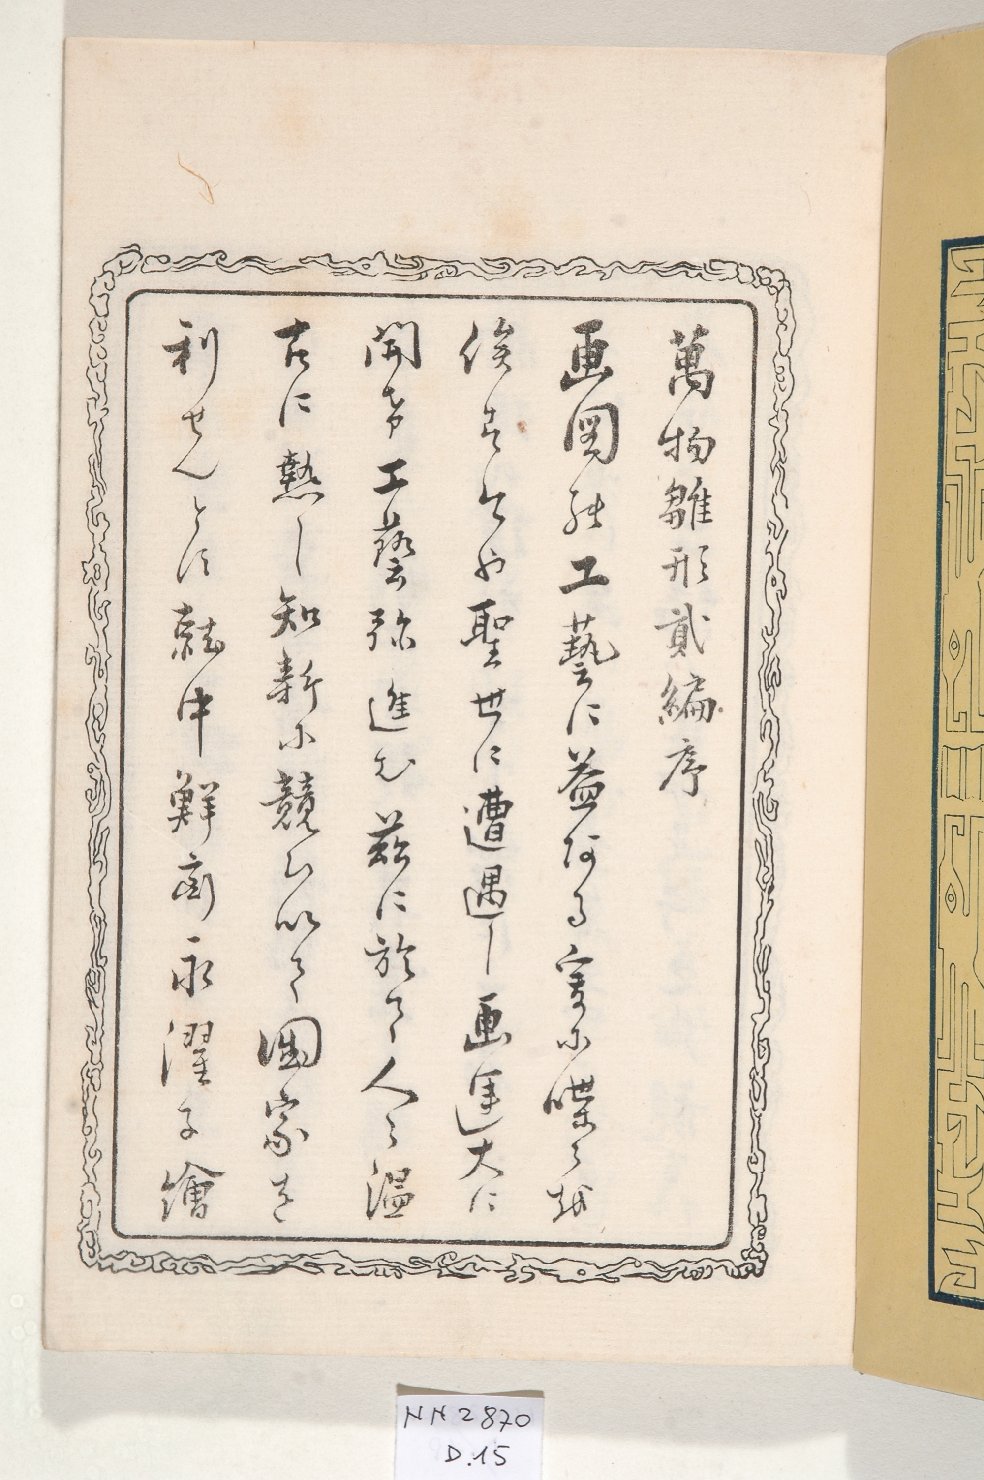 萬物雛形貳編序
画図能工藝に益ある実に喋々越
俟きんや聖世に遭遇し画運大に
開希工藝弥進む茲に於て人々温
古に熱し知新に競ひ以て国家を
利せんとす就中鮮斎永濯子繪
NN2870
D.15